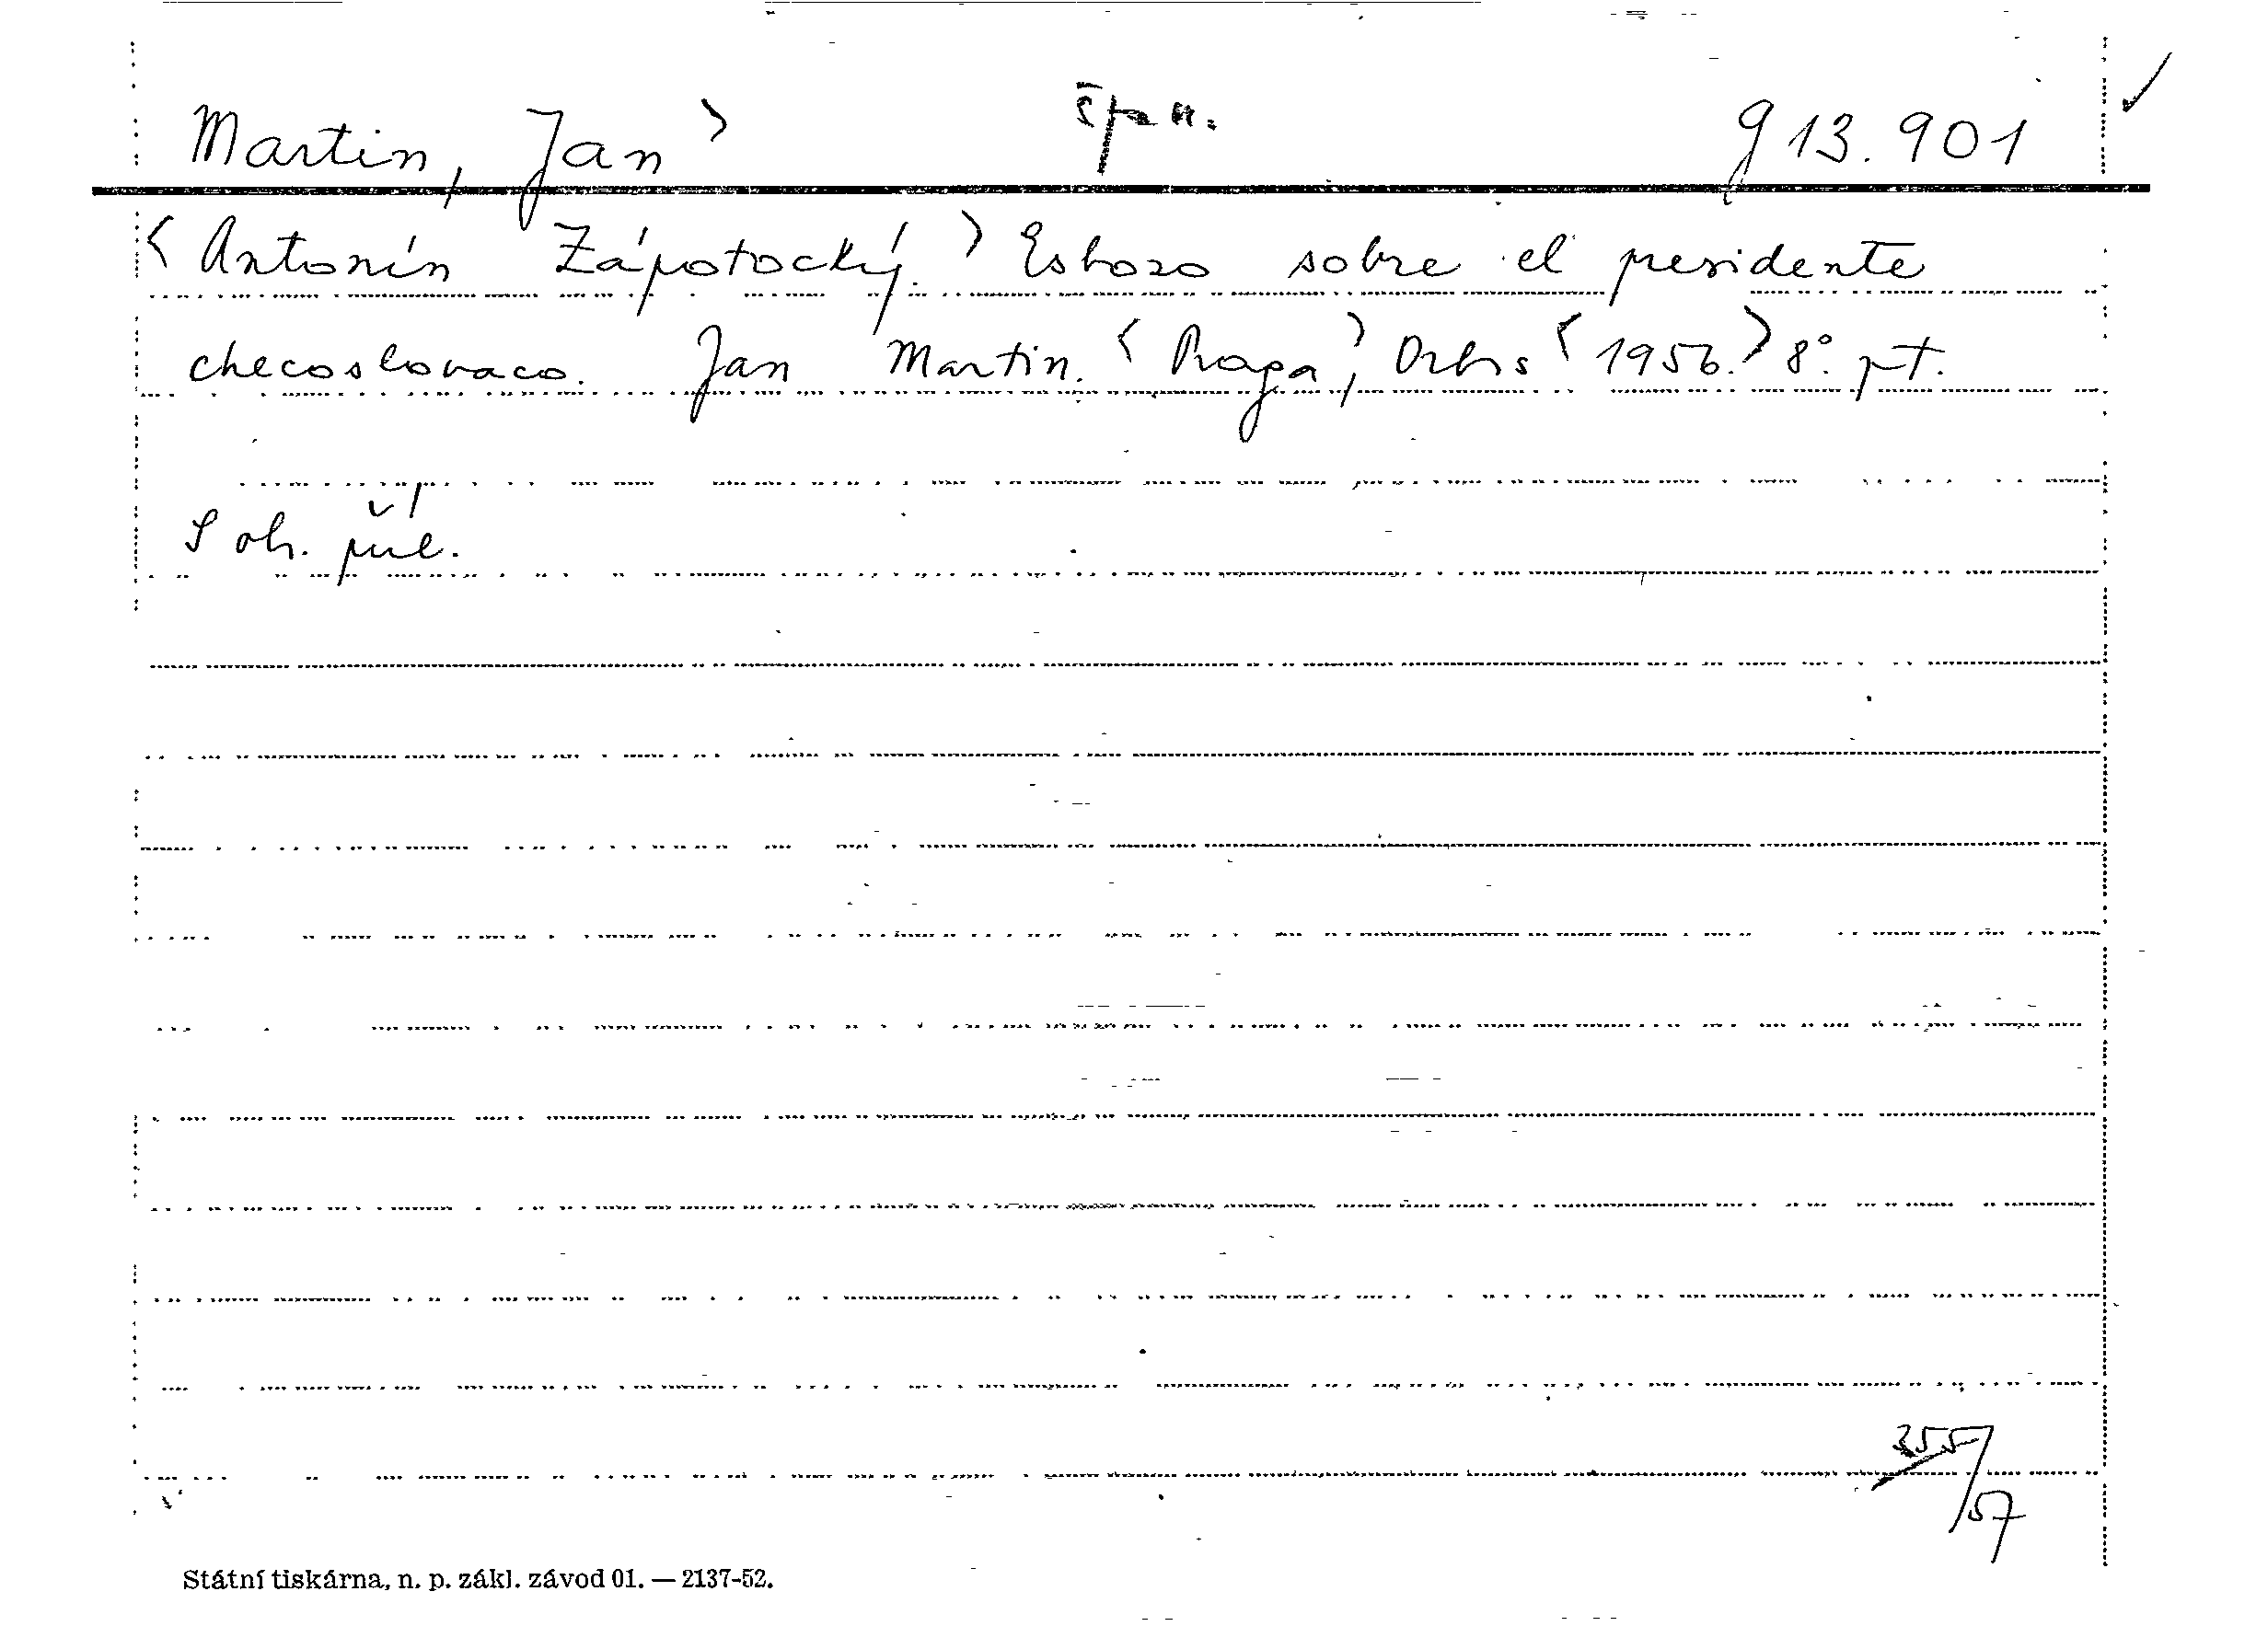 Martin, Jan > špan. g 13.901 ✓
< Antonín Zápotocký. > Esbozo sobre el presidente
checoslovaco. Jan Martin. < Praga, > Orbis < 1956. > 8°. pt.
S obr. příl.
355/57
Státní tiskárna, n. p. zákl. závod 01. — 2137-52.